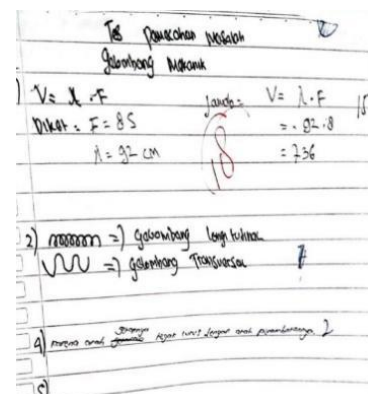 Tes Pemecahan Masalah
Gelombang Mekanik
1) V = λ . F
Diket = F = 8 S
λ = 92 cm
Jawab = V = λ . F
= . 92 . 8
= 736
15
18
2) => gelombang longitudinal
=> gelombang Transversal
4) Karena arah getarnya tegak lurus dengan arah perambatannya 2
5)